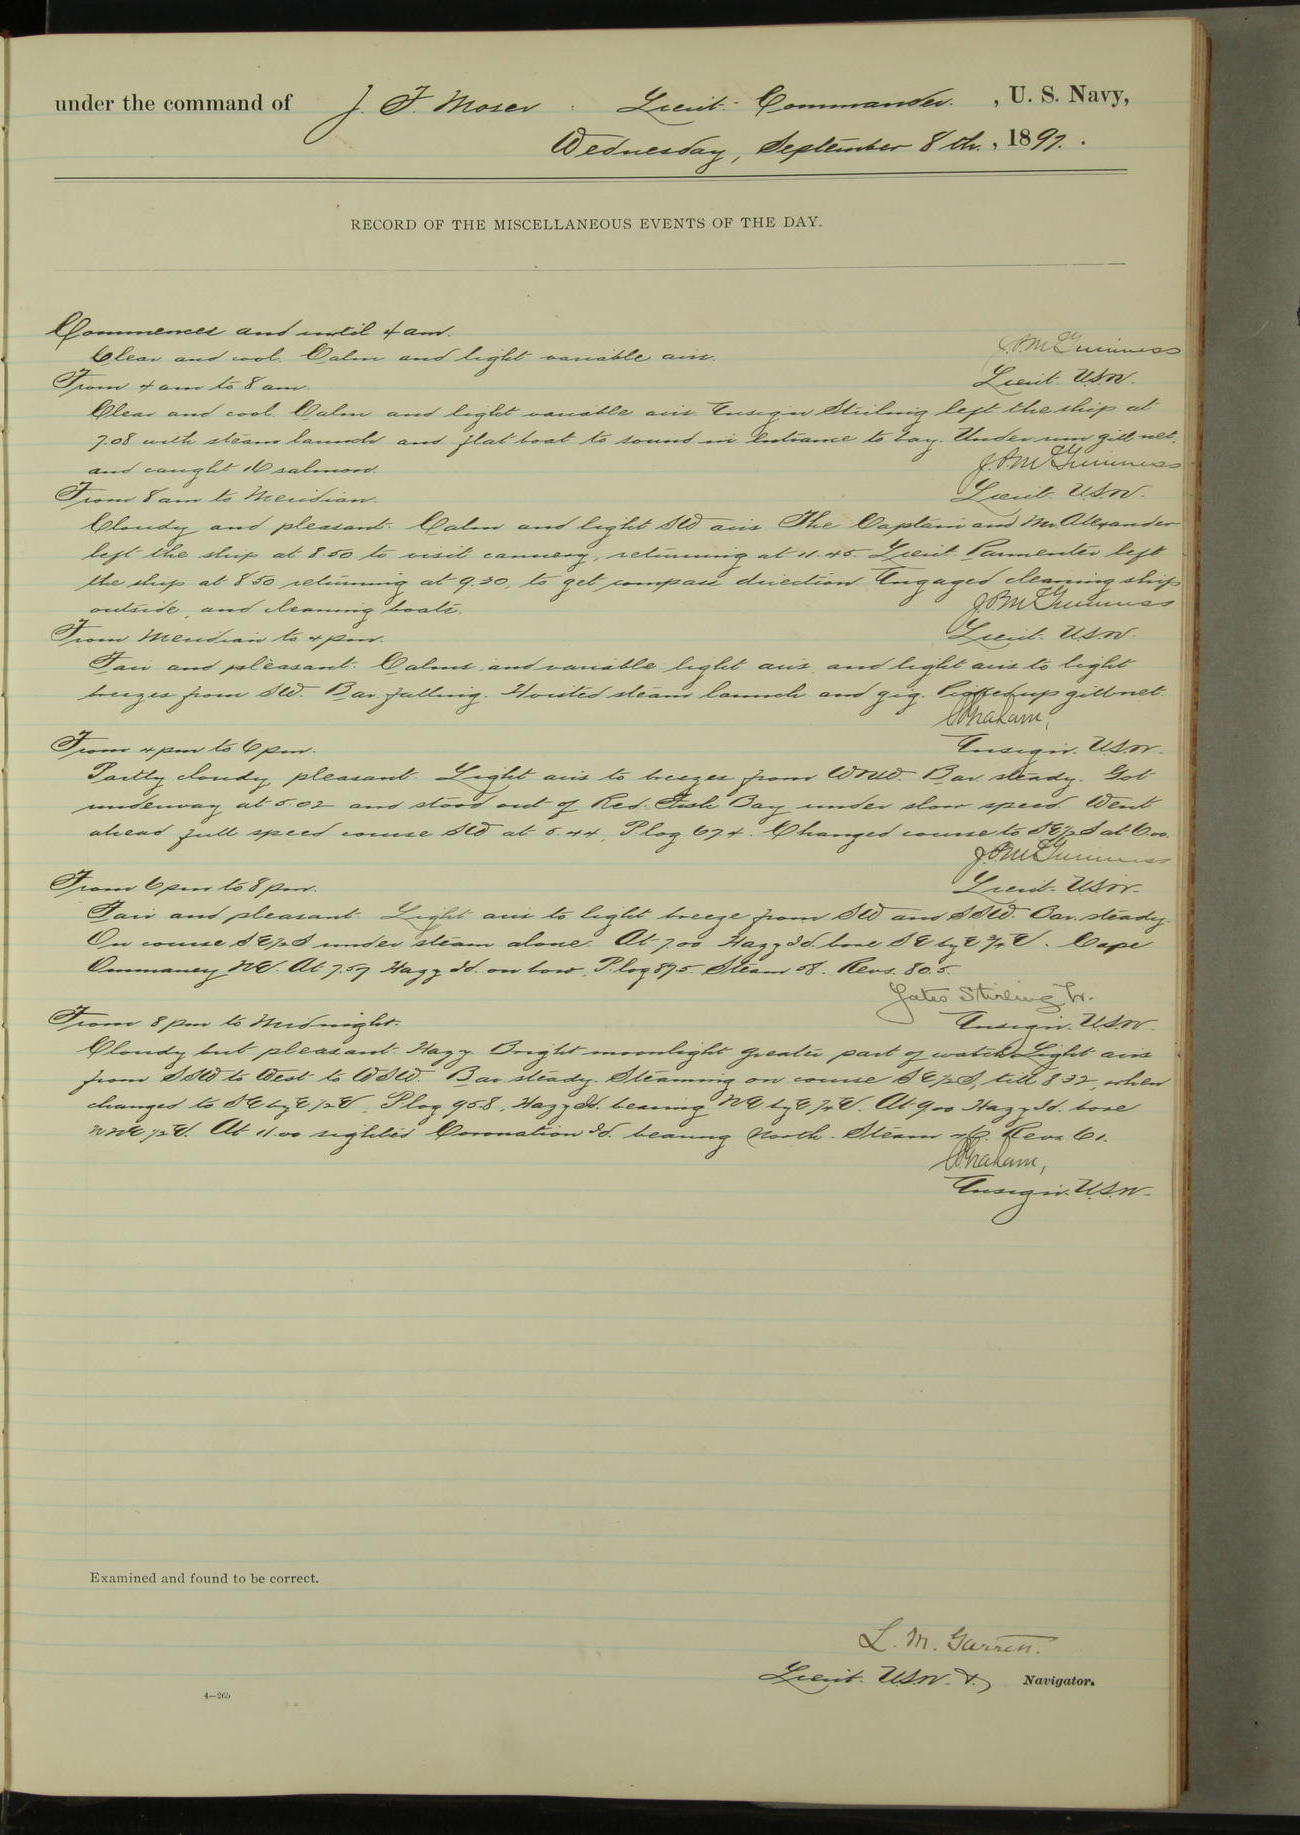 under the command of J. F. Moser Lieut. Commander. , U. S. Navy,
Wednesday, September 8th. , 1897.
RECORD OF THE MISCELLANEOUS EVENTS OF THE DAY.
Commences and until 4 am.
Clear and cool. Calm and light variable airs.
J.P. McGuinness
From 4 am to 8 am.
Lieut. U.S.N.
Clear and cool. Calm and light variable airs. Ensign Stirling left the ship at
7.08 with steam launch and flat boat to sound in entrance to bay. Under run gill net.
and caught 16 salmon.
J.P. McGuinness
From 8 am to Meridian.
Lieut. U.S.N.
Cloudy and pleasant. Calm and light SW airs. The Captain and Mr. Alexander
left the ship at 8.50 to visit cannery, returning at 11.45. Lieut. Parmenter left
the ship at 8 50 returning at 9.30, to get compass direction. Engaged cleaning ship
outside, and cleaning boats.
J.P. McGuinness
From Meridian to 4 pm.
Lieut. U.S.N.
Fair and pleasant. Calms and variable light airs and light airs to light
breezes from SW. Bar. falling. Hoisted steam launch and gig. Picked up gill net.
Graham,
From 4 pm to 6 pm.
Ensign. U.S.N.
Partly cloudy, pleasant. Light airs to breezes from WNW. Bar steady. Got
underway at 5.02 and stood out of Red Fish Bay under slow speed. Went
ahead full speed course SW at 5.44, P. log 67.4. Changed course to SE½S at 6.00.
J.P. McGuinness
From 6 pm to 8 pm.
Lieut. U.S.N.
Fair and pleasant. Light airs to light breeze from SW and SSW. Bar. steady.
On course SE½S under steam alone. At 7.00 Hazy Id. bore SE by E ¾ E. Cape
Ommaney NE. At 7.57 Hazy Id. on bow, P. log 87.5. Steam 58. Revs. 80.5.
Yates Stirling Jr.
From 8 pm to Midnight.
Ensign. U.S.N.
Cloudy but pleasant. Hazy. Bright moonlight greater part of watch. Light airs
from SSW to West to WSW. Bar steady. Steaming on course SE½S, till 8 32, when
changed to SE by E ½ E, P. log 95.8, Hazy Id. bearing NE by E ¼ E. At 9 00 Hazy Id. bore
NNE ½ E. At 11.00 sighted Coronation Id. bearing North. Steam 46. Revs 61.
Graham,
Ensign. U.S.N.
Examined and found to be correct.
L. M. Garrett.
Lieut. U.S.N. &, Navigator.
4—265